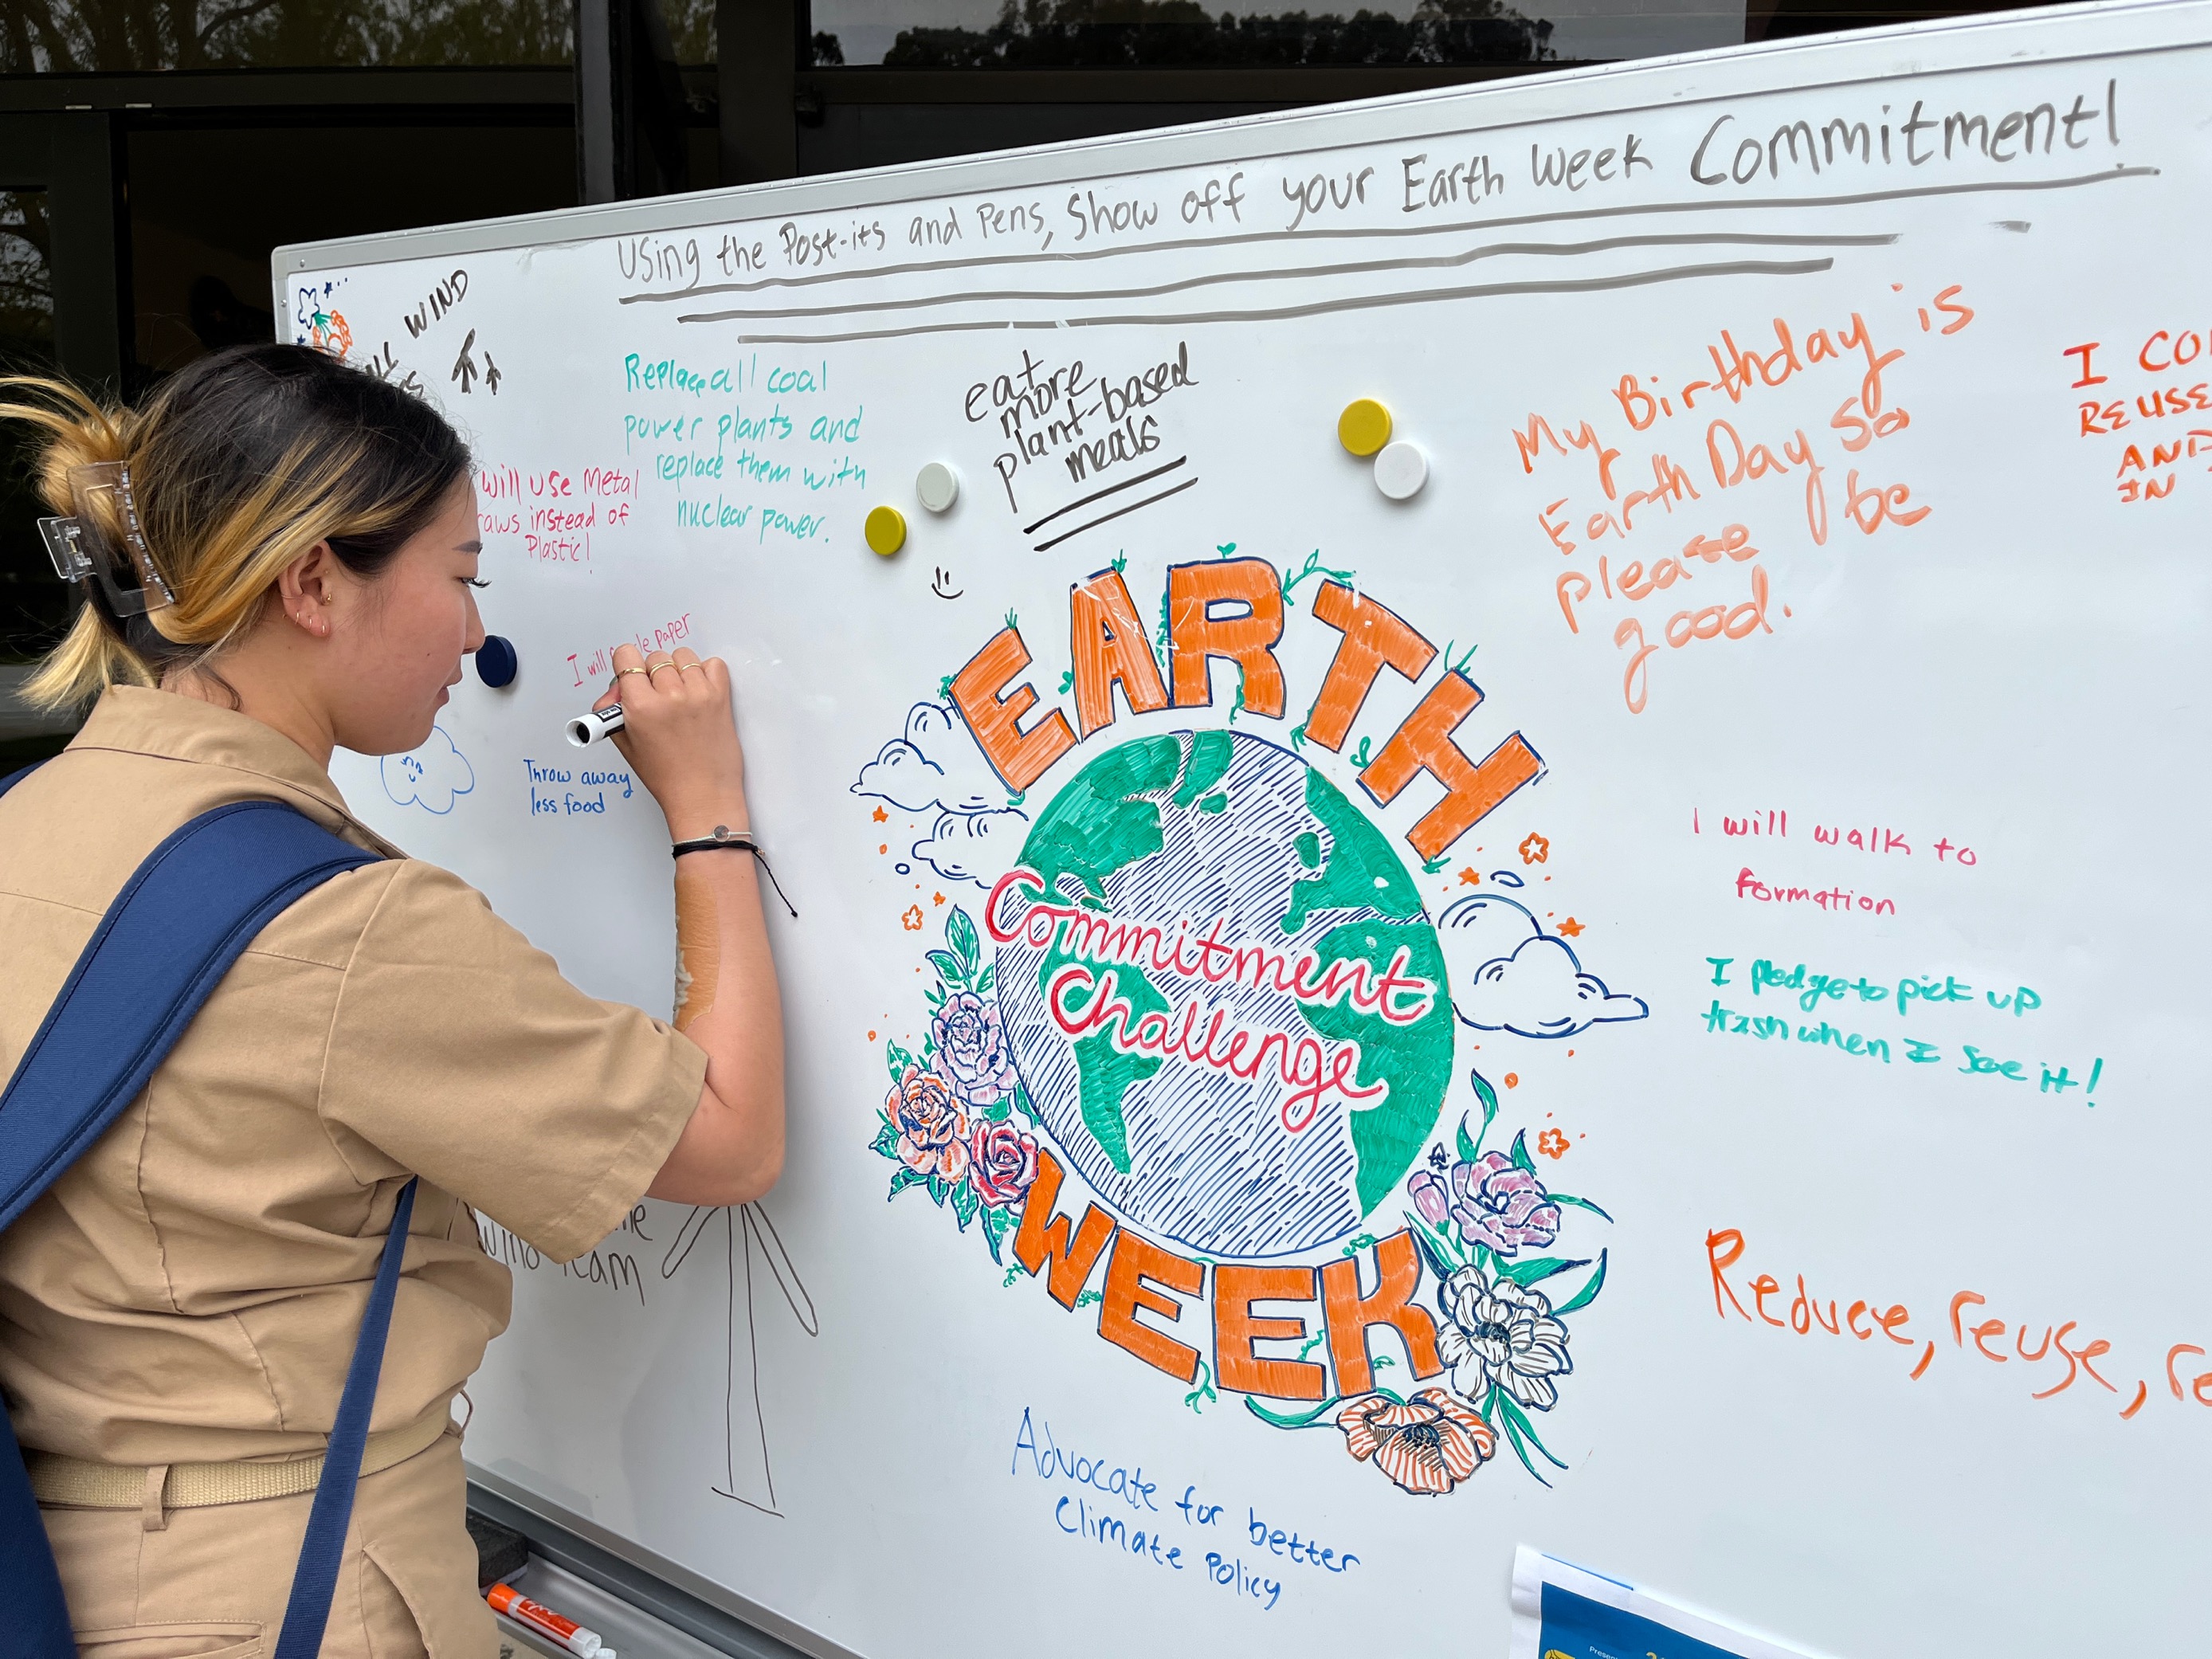 Using the Post-its and Pens, Show off your Earth Week Commitment!
WIND
Replace all coal
power plants and
replace them with
nuclear power.
eat
more
plant-based
meals
My Birthday is
Earth Day so
please be
good.
I
REUSE
AND
IN
will use Metal
instead of
Plastic!
I will paper
Throw away
less food
EARTH
Commitment
Challenge
WEEK
I will walk to
formation
I pledge to pick up
trash when I see it!
Reduce, reuse,
Team
Advocate for better
Climate Policy